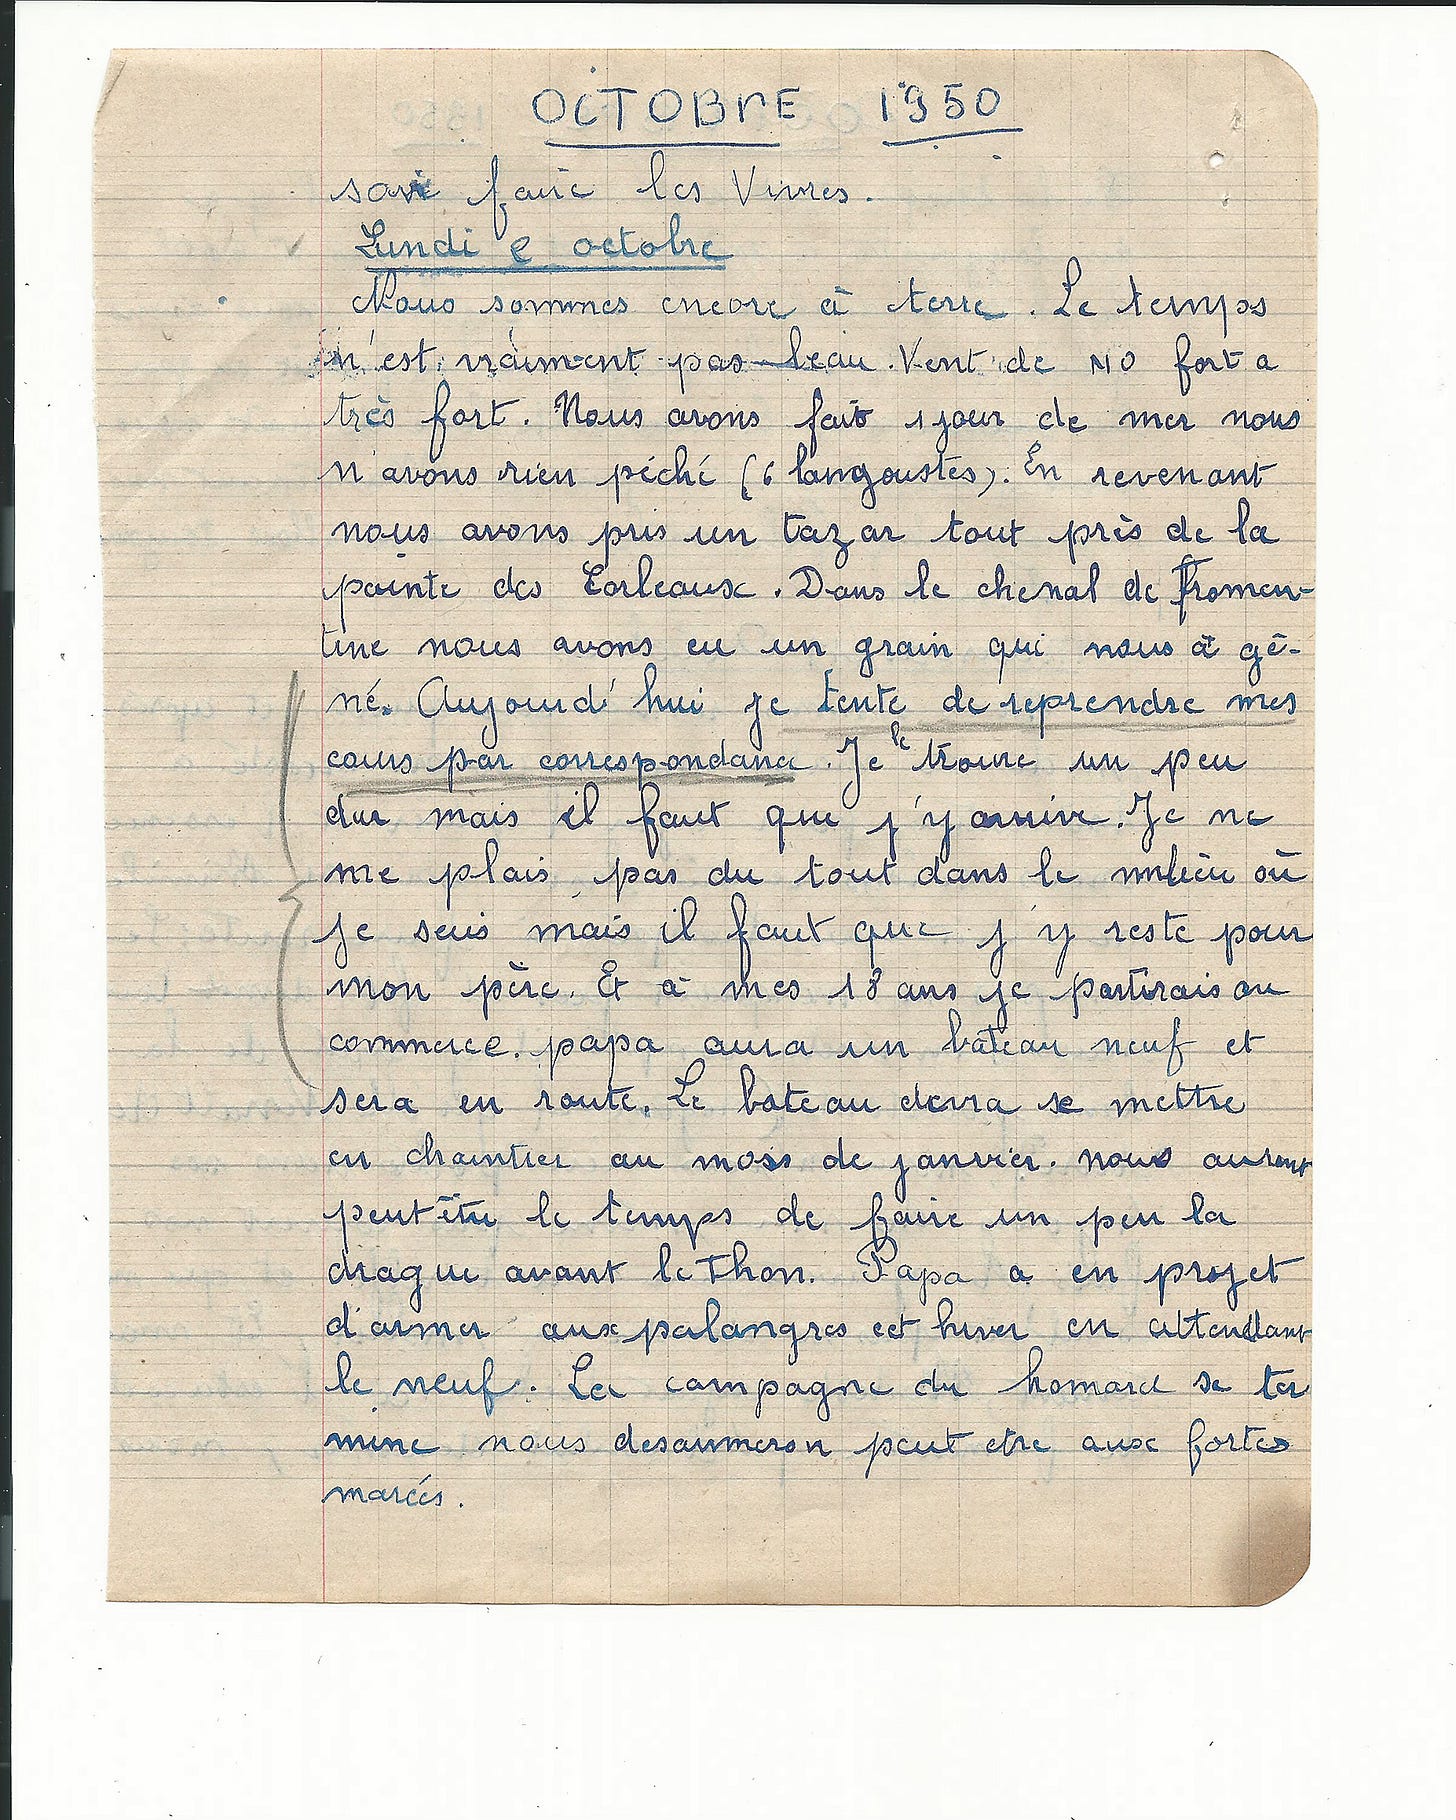 OCTOBRE 1950
soir faire les Vivres.
Lundi 2 octobre
Nous sommes encore à terre. Le temps
n'est vraiment pas beau. Vent de NO fort a
très fort. Nous avons fait 1 jour de mer nous
n'avons rien pêché (6 langoustes). En revenant
nous avons pris un tazar tout près de la
pointe des Corbeaux. Dans le chenal de Fromen-
tine nous avons eu un grain qui nous à gê-
né. Aujourd'hui je tente de reprendre mes
cours par correspondance. Je le trouve un peu
dur mais il faut que j'y arrive. Je ne
me plais pas du tout dans le milieu où
je suis mais il faut que j'y reste pour
mon père. Et à mes 18 ans je partirais au
commerce. papa aura un bateau neuf et
sera en route. Le bateau devra se mettre
en chantier au mois de janvier. nous auront
peut être le temps de faire un peu la
drague avant le Thon. Papa a en projet
d'armer aux palangres cet hiver en attendant
le neuf. La campagne du homard se ter
mine nous desarmeron peut etre aux fortes
marées.